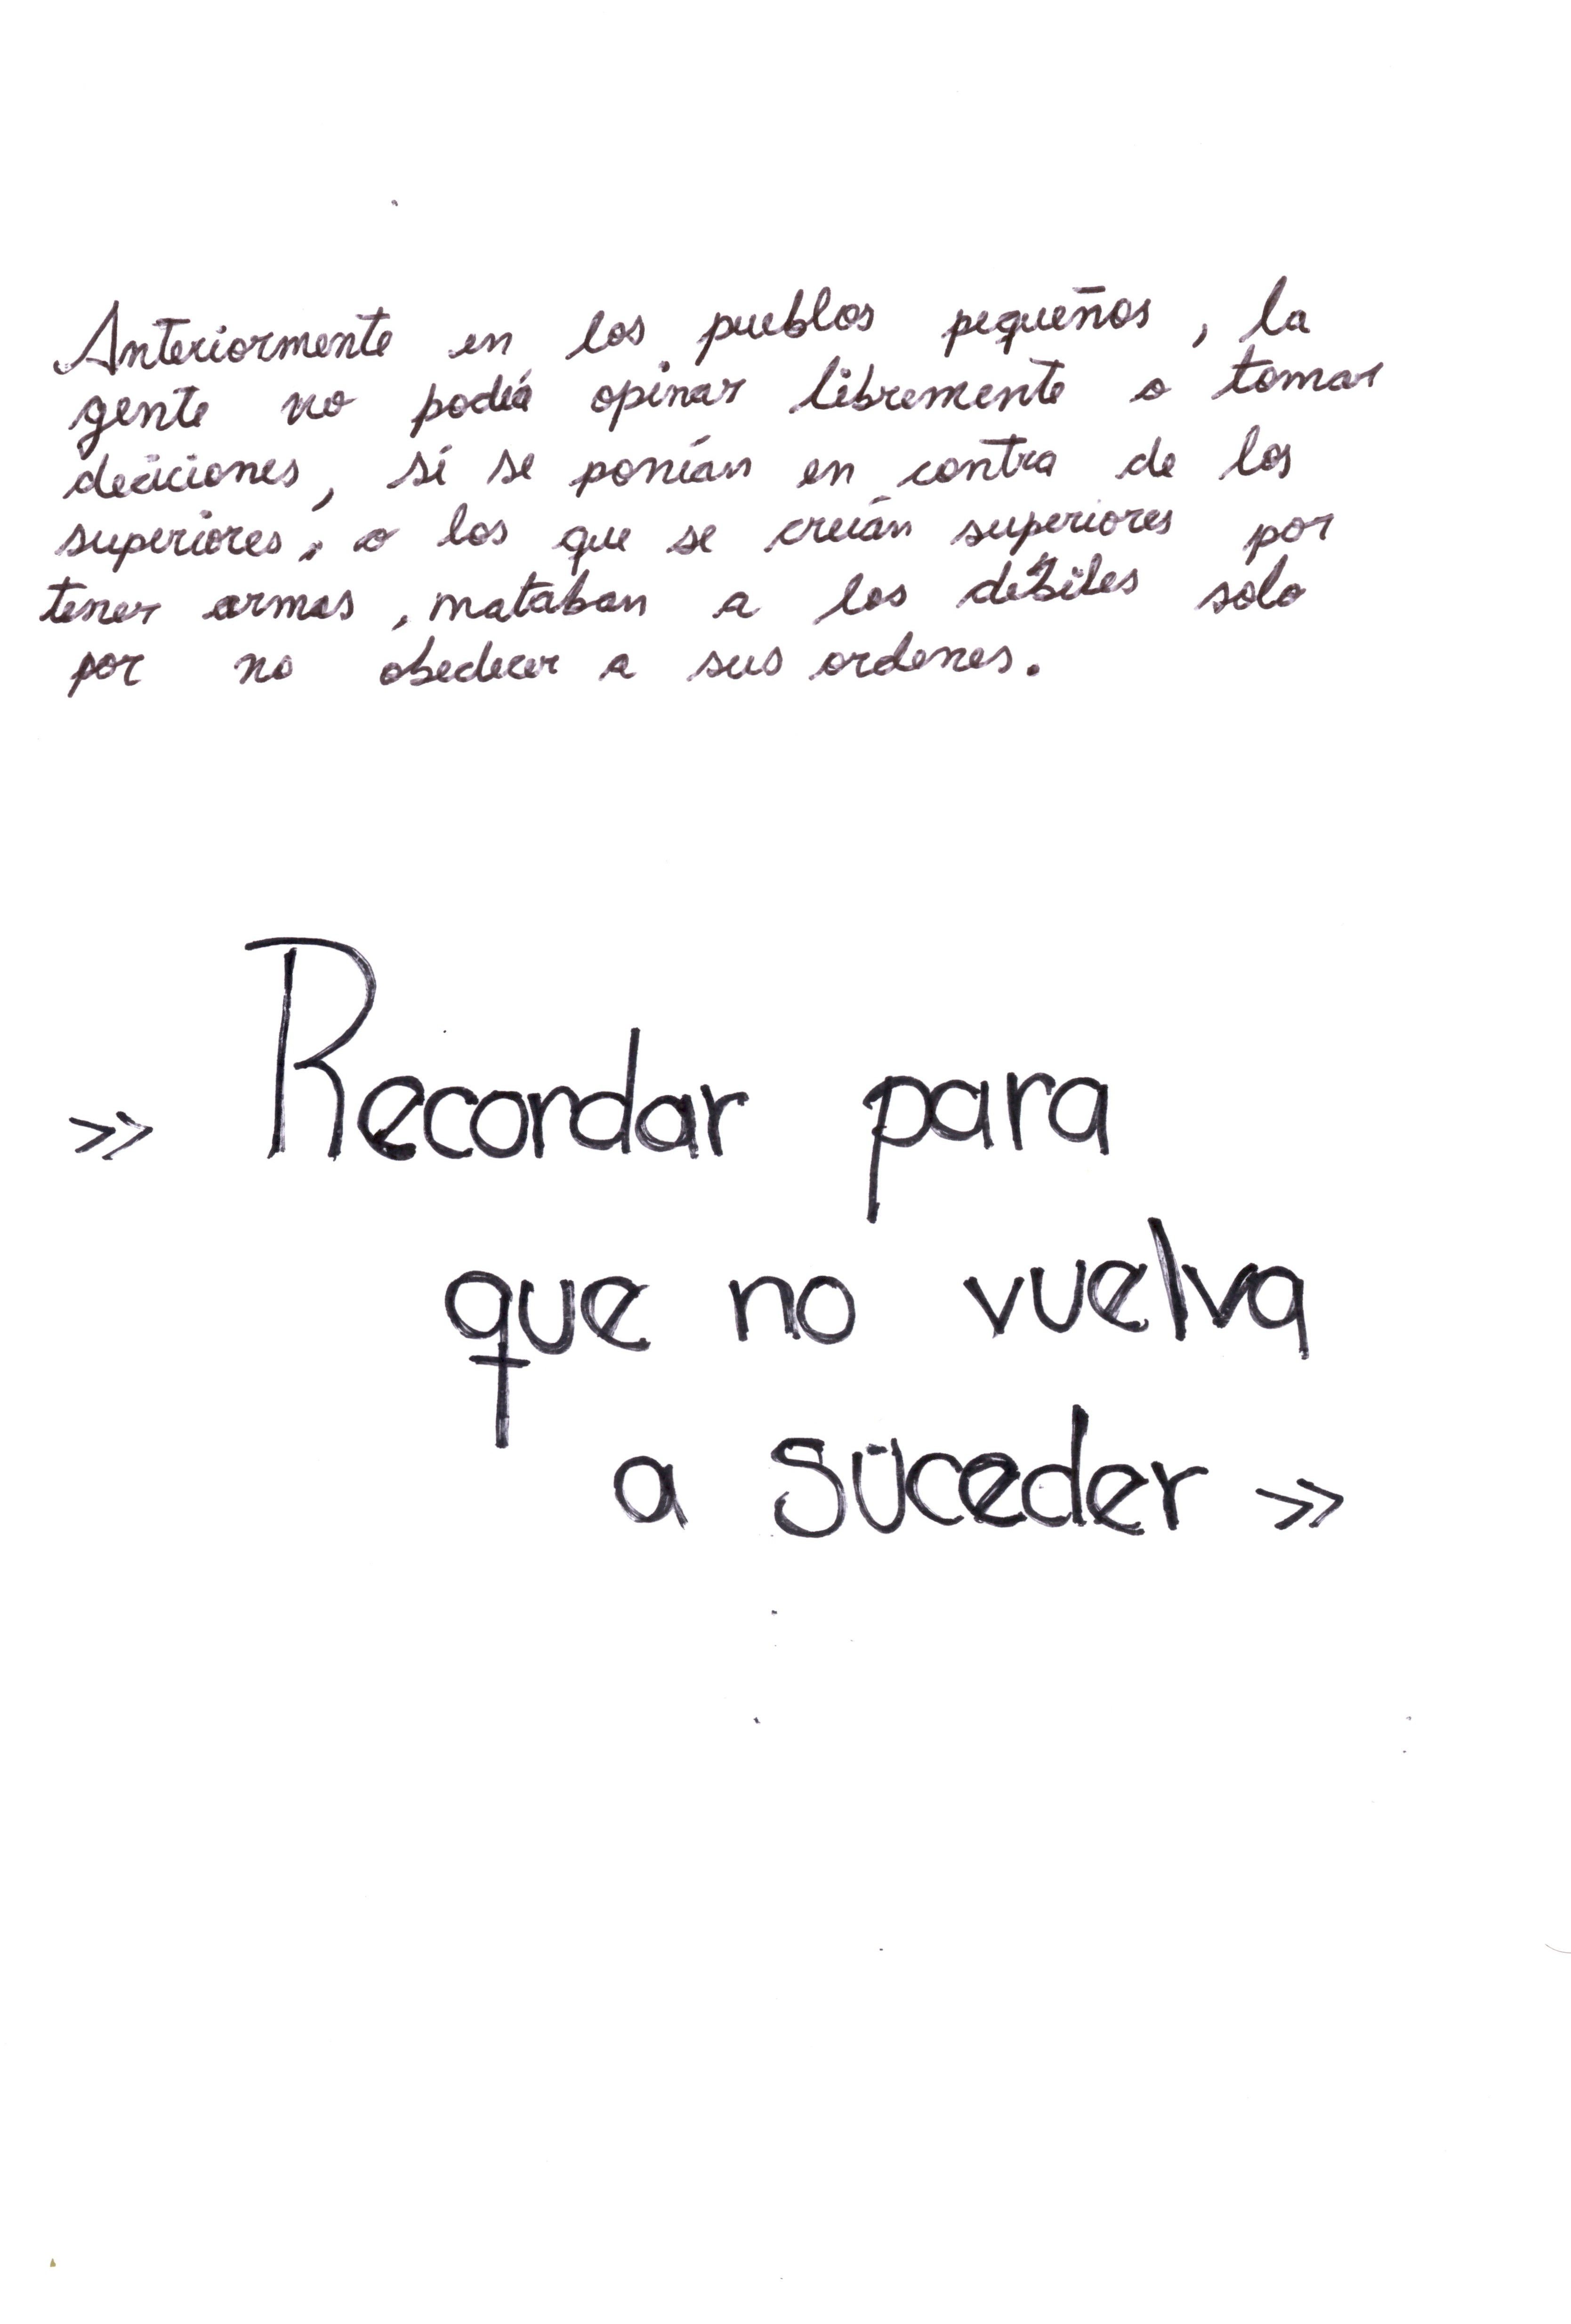 Anteriormente en los pueblos pequeños, la
gente no podía opinar libremente o tomar
deciciones, sí se ponían en contra de los
superiores, o los que se creían superiores por
tener armas, mataban a los débiles solo
por no obedecer a sus ordenes.
>> Recordar para
que no vuelva
a suceder >>